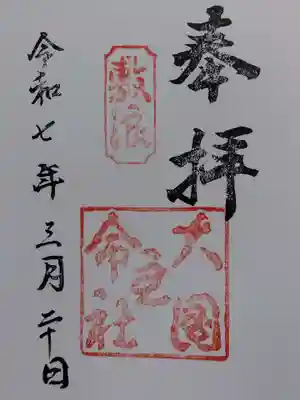 奉拝
敷浪
大国
主
命社
令和七年三月二十日